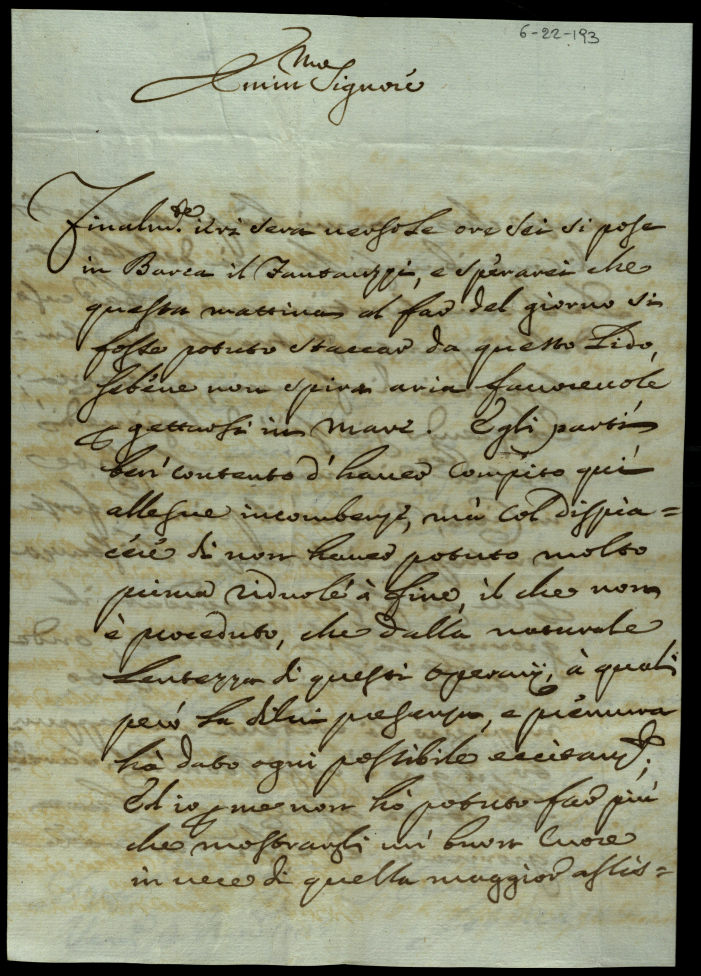 6-22-193
Ill.mo
Signore
Finalm.te ieri sera verso le ore sei si pose
in Barca il Fantauzzi, e sperarei che
questa mattina al far del giorno si
fosse potuto staccar da questo Lido,
sebene non spira aria favorevole
p gettarsi in Mare. Egli partì
ben contento d'haver compito qui
allesue incombenze, mà col dispia=
cere di non haver potuto molto
prima ridurle à fine, il che non
è proceduto, che dalla naturale
lentezza di questi Operarij, à quali
però la di lui presenza, e premura
hà dato ogni possibile eccitam.to;
Ed io p me non hò potuto far più
che mostrargli un buon Cuore
in vece di quella maggior assis=